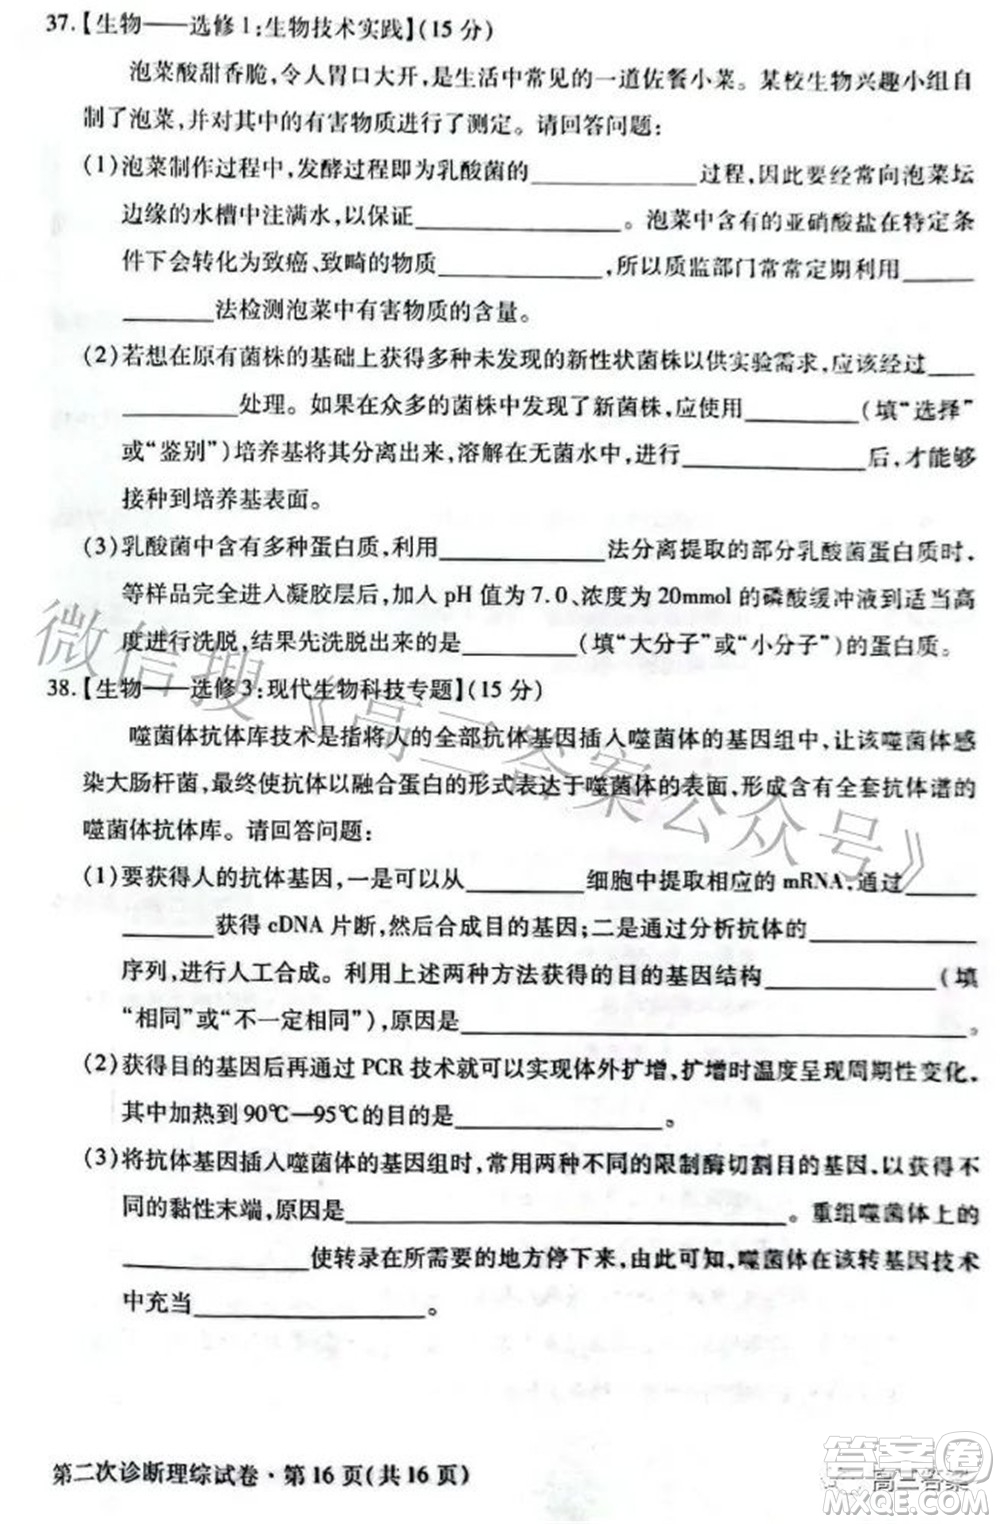 37.【生物——选修1:生物技术实践】(15分)
泡菜酸甜香脆,令人胃口大开,是生活中常见的一道佐餐小菜。某校生物兴趣小组自
制了泡菜,并对其中的有害物质进行了测定。请回答问题:
(1)泡菜制作过程中,发酵过程即为乳酸菌的__________过程,因此要经常向泡菜坛
边缘的水槽中注满水,以保证____________。泡菜中含有的亚硝酸盐在特定条
件下会转化为致癌、致畸的物质__________,所以质监部门常常定期利用____
______法检测泡菜中有害物质的含量。
(2)若想在原有菌株的基础上获得多种未发现的新性状菌株以供实验需求,应该经过___
________处理。如果在众多的菌株中发现了新菌株,应使用________(填“选择”
或“鉴别”)培养基将其分离出来,溶解在无菌水中,进行____________后,才能够
接种到培养基表面。
(3)乳酸菌中含有多种蛋白质,利用__________法分离提取的部分乳酸菌蛋白质时,
等样品完全进入凝胶层后,加入pH值为7.0、浓度为20mmol的磷酸缓冲液到适当高
度进行洗脱,结果先洗脱出来的是________(填“大分子”或“小分子”)的蛋白质。
38.【生物——选修3:现代生物科技专题】(15分)
噬菌体抗体库技术是指将人的全部抗体基因插入噬菌体的基因组中,让该噬菌体感
染大肠杆菌,最终使抗体以融合蛋白的形式表达于噬菌体的表面,形成含有全套抗体谱的
噬菌体抗体库。请回答问题:
(1)要获得人的抗体基因,一是可以从________细胞中提取相应的mRNA,通过____
______获得cDNA片断,然后合成目的基因;二是通过分析抗体的__________
序列,进行人工合成。利用上述两种方法获得的目的基因结构____________(填
“相同”或“不一定相同”),原因是______________________________。
(2)获得目的基因后再通过PCR技术就可以实现体外扩增,扩增时温度呈现周期性变化,
其中加热到90℃—95℃的目的是____________。
(3)将抗体基因插入噬菌体的基因组时,常用两种不同的限制酶切割目的基因,以获得不
同的黏性末端,原因是____________________________。重组噬菌体上的
____________使转录在所需要的地方停下来,由此可知,噬菌体在该转基因技术
中充当______________。
第二次诊断理综试卷·第16页(共16页)
微信搜《高三答案公众号》
高三答案
MXQE.COM